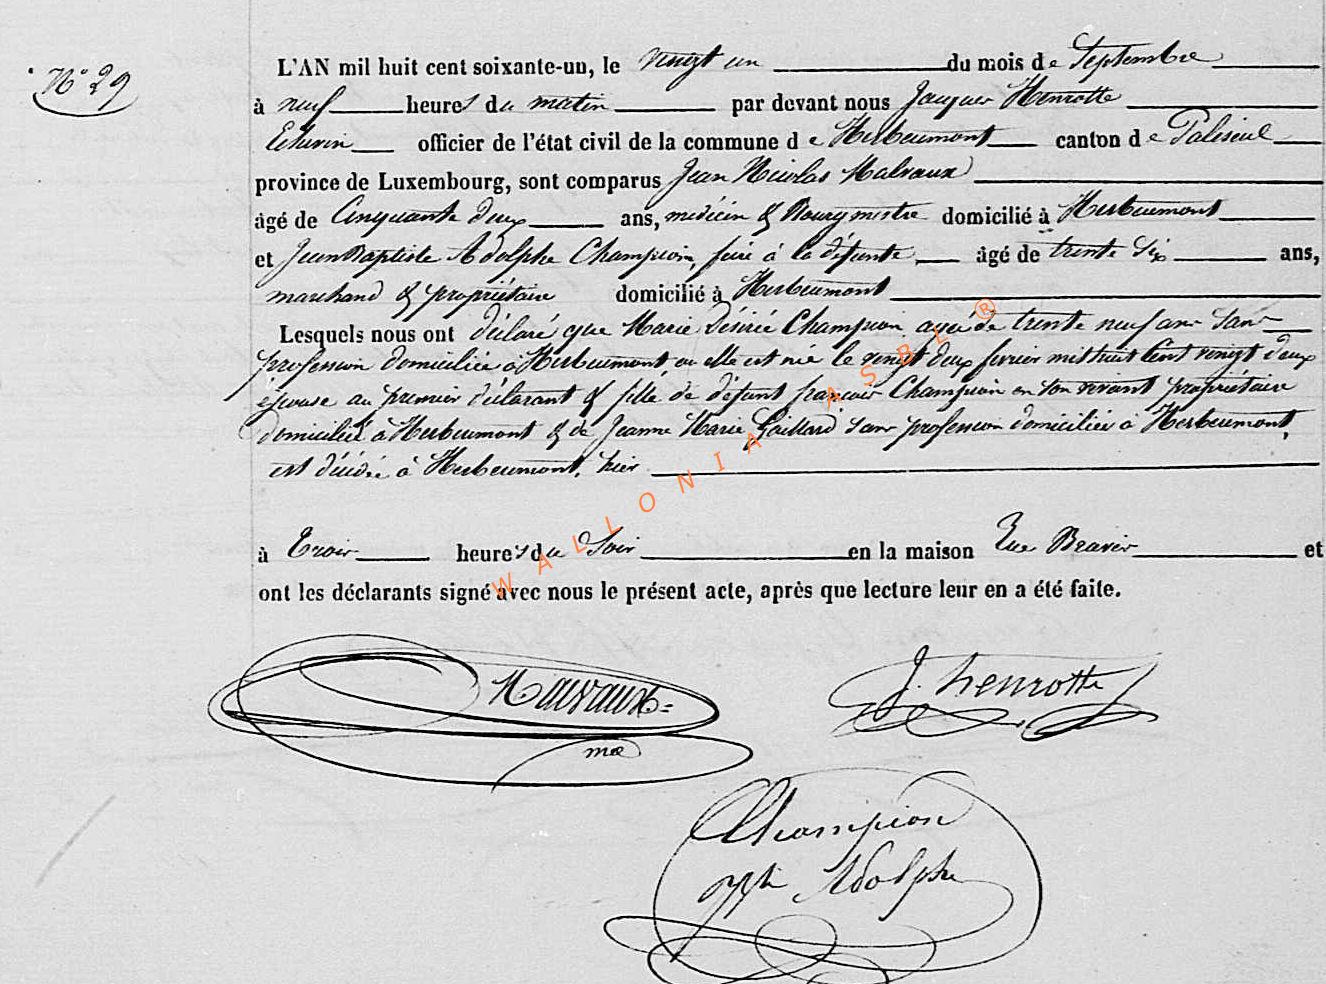 N° 29
L'AN mil huit cent soixante-un, le vingt un du mois de Septembre
à neuf heures du matin par devant nous Jacques Henrotte
Echevin officier de l'état civil de la commune de Herbeumont canton de Paliseul
province de Luxembourg, sont comparus Jean Nicolas Malvaux
âgé de Cinquante deux ans, médecin & Bourgmestre domicilié à Herbeumont
et Jean Baptiste Adolphe Champion, frère à la défunte, âgé de trente six ans,
marchand & propriétaire domicilié à Herbeumont
Lesquels nous ont déclaré que Marie Désirée Champion agée de trente neuf ans sans
profession domiciliée à Herbeumont, ou elle est née le vingt deux fevrier mil huit Cent vingt deux
épouse au premier déclarant & fille de défunt françois Champion en son vivant propriétaire
domicilié à Herbeumont & de Jeanne Marie Gaillard sans profession domiciliée à Herbeumont,
est décédée à Herbeumont, hier
à Trois heures du Soir en la maison Rue et
ont les déclarants signé avec nous le présent acte, après que lecture leur en a été faite.
Malvaux J. henrotte
Champion
Adolphe
WALLONIA ASBL ®